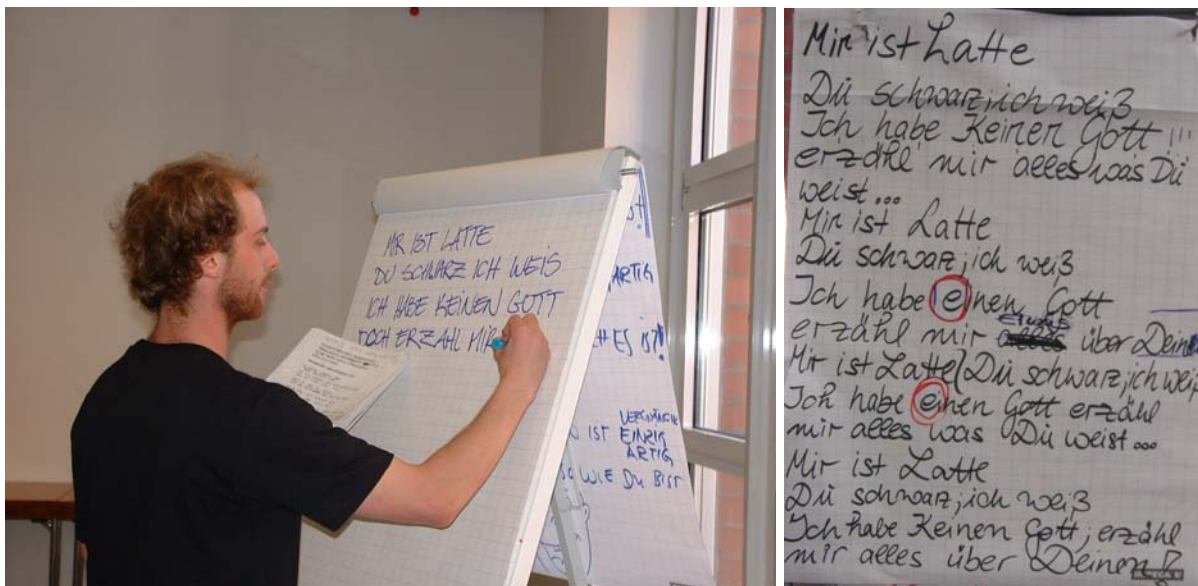 MIR IST LATTE
DU SCHWARZ ICH WEIS
ICH HABE KEINEN GOTT
DOCH ERZÄHL MIR
st!
ARTIG
ES IST!
VERGÄNGLICH
IST EINZIG
ARTIG
SO WIE DU BIST
Mir ist Latte
Du schwarz, ich weiß
Ich habe Keinen Gott !!!
erzähl mir alles was Du
weist...
Mir ist Latte
Du schwarz, ich weiß
Ich habe einen Gott
etwas
erzähl mir über Deinen
Mir ist Latte / Du schwarz, ich weiß
Ich habe einen Gott erzähl
mir alles was Du weist...
Mir ist Latte
Du schwarz, ich weiß
Ich habe Keinen Gott, erzähl
mir alles über Deinen!